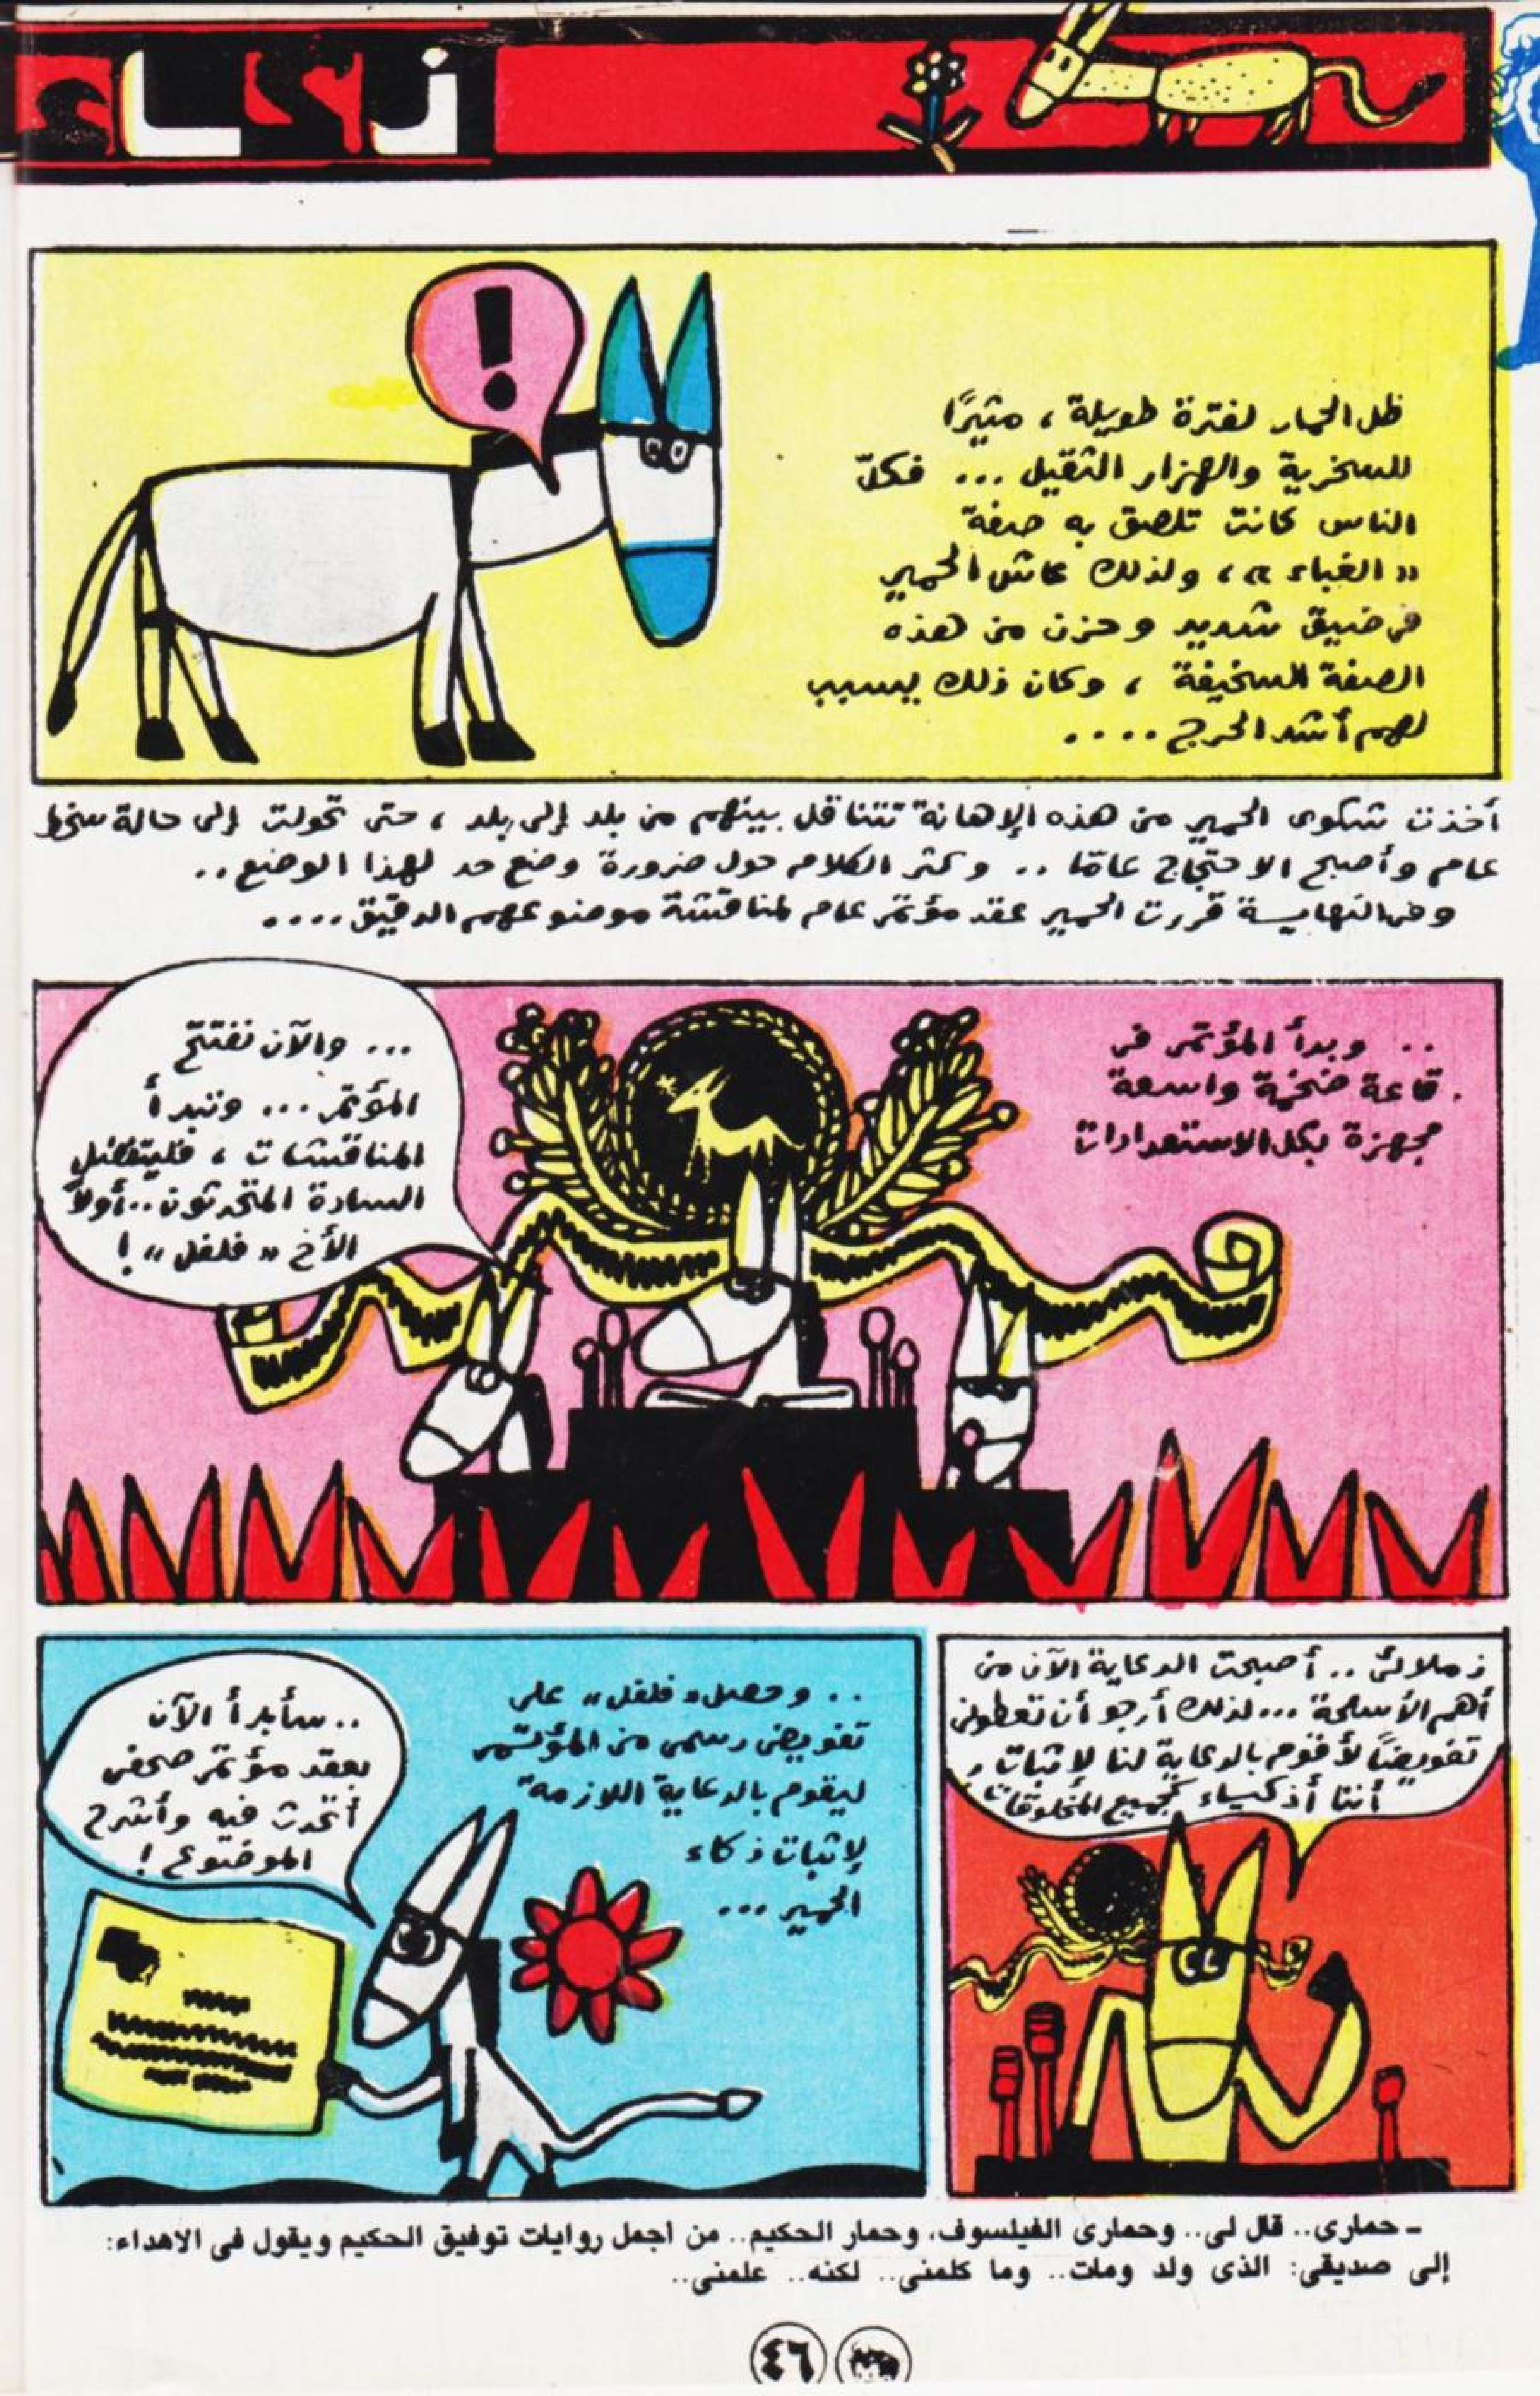 ذكاء
!
ظل الحمار لفترة طويلة ، مثيرًا
للسخرية والهزار الثقيل ... فكلّ
الناس كانت تلصق به صفة
« الغباء » ، ولذلك عاش الحمير
فى ضيق شديد وحزن من هذه
الصفة السخيفة ، وكان ذلك يسبب
لهم أشد الحرج ....
أخذت شكوى الحمير من هذه الإهانة تتناقل بينهم من بلد إلى بلد ، حتى تحولت إلى حالة سخط
عام وأصبح الاحتجاج عامًا .. وكثر الكلام حول ضرورة وضع حد لهذا الوضع ..
وفى النهاية قررت الحمير عقد مؤتمر عام لمناقشة موضوعهم الدقيق ....
.. وبدأ المؤتمر فى
قاعة ضخمة واسعة
مجهزة بكل الاستعدادات
... والآن نفتتح
المؤتمر ... ونبدأ
المناقشات ، فليتفضل
السادة المتحدثون .. أولاً
الأخ « فلفل » !
زملائى .. أصبحت الدعاية الآن من
أهم الأسلحة ... لذلك أرجو أن تعطونى
تفويضًا لأقوم بالدعاية لنا لإثبات
أننا أذكياء كجميع المخلوقات
.. وحصل « فلفل » على
تفويض رسمى من المؤتمر
ليقوم بالدعاية اللازمة
لإثبات ذكاء
الحمير ...
.. سأبدأ الآن
بعقد مؤتمر صحفى
أتحدث فيه وأشرح
الموضوع !
- حمارى.. قال لى.. وحمارى الفيلسوف، وحمار الحكيم.. من أجمل روايات توفيق الحكيم ويقول فى الاهداء:
إلى صديقى: الذى ولد ومات.. وما كلمنى.. لكنه.. علمنى..
٤٦